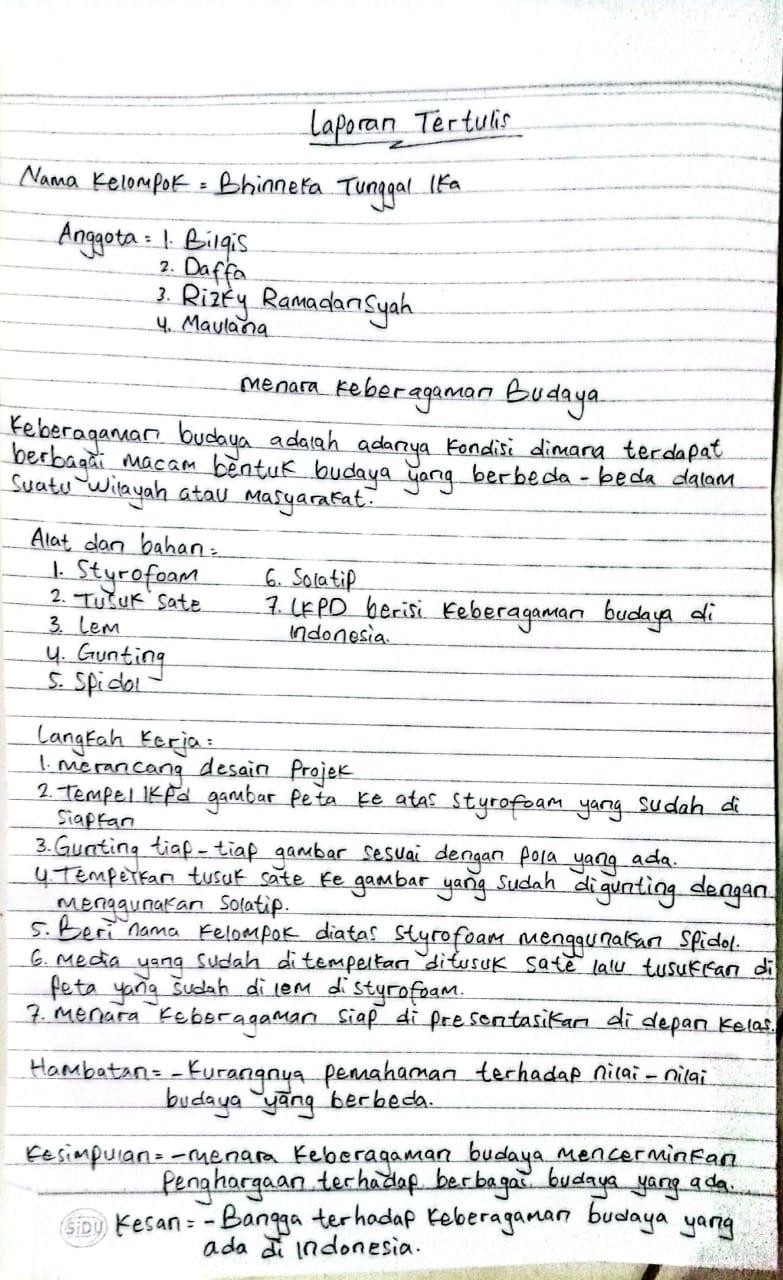 Laporan Tertulis
Nama Kelompok = Bhinneka Tunggal Ika
Anggota = 1. Bilqis
2. Daffa
3. Rizky Ramadansyah
4. Maulana
Menara Keberagaman Budaya
Keberagaman budaya adalah adanya kondisi dimana terdapat
berbagai macam bentuk budaya yang berbeda - beda dalam
suatu wilayah atau masyarakat.
Alat dan bahan =
1. Styrofoam
2. Tusuk sate
3. Lem
4. Gunting
5. Spidol
6. Solatip
7. LKPD berisi keberagaman budaya di
indonesia.
Langkah kerja :
1. Merancang desain Projek
2. Tempel lKPd gambar peta ke atas styrofoam yang sudah di
siapkan
3. Gunting tiap - tiap gambar sesuai dengan pola yang ada.
4. Tempelkan tusuk sate ke gambar yang sudah digunting dengan
menggunakan solatip.
5. Beri nama kelompok diatas styrofoam menggunakan spidol.
6. Media yang sudah ditempelkan ditusuk sate lalu tusukkan di
peta yang sudah di lem distyrofoam.
7. Menara keberagaman siap di presentasikan di depan kelas.
Hambatan = - Kurangnya pemahaman terhadap nilai - nilai
budaya yang berbeda.
Kesimpulan = - menara keberagaman budaya mencerminkan
penghargaan terhadap berbagai budaya yang ada.
SiDU
Kesan = - Bangga terhadap keberagaman budaya yang
ada di indonesia.